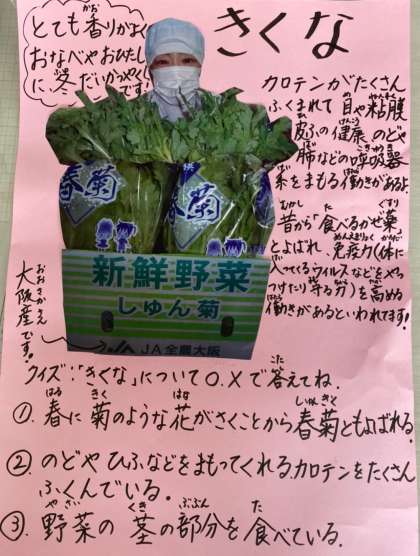 きくな
とても香りがよく
おなべやおひたし
に、冬だいかつやく
です!
カロテンがたくさん
ふくまれて目や粘膜
皮ふの健康のどや
肺などの呼吸器
系をまもる働きがあるよ
昔から「食べるかぜ薬」
とよばれ、免疫力(体に
入ってくるウイルスなどをやっ
つけたり守る力)を高める
働きがあるといわれてます!
春菊
春菊
新鮮野菜
しゅん菊
JA全農大阪
大阪産です!
クイズ:「きくな」について○、×で答えてね.
①.春に菊のような花がさくことから春菊ともよばれる
②.のどやひふなどをまもってくれる.カロテンをたくさん
ふくんでいる.
③.野菜の茎の部分を食べている.